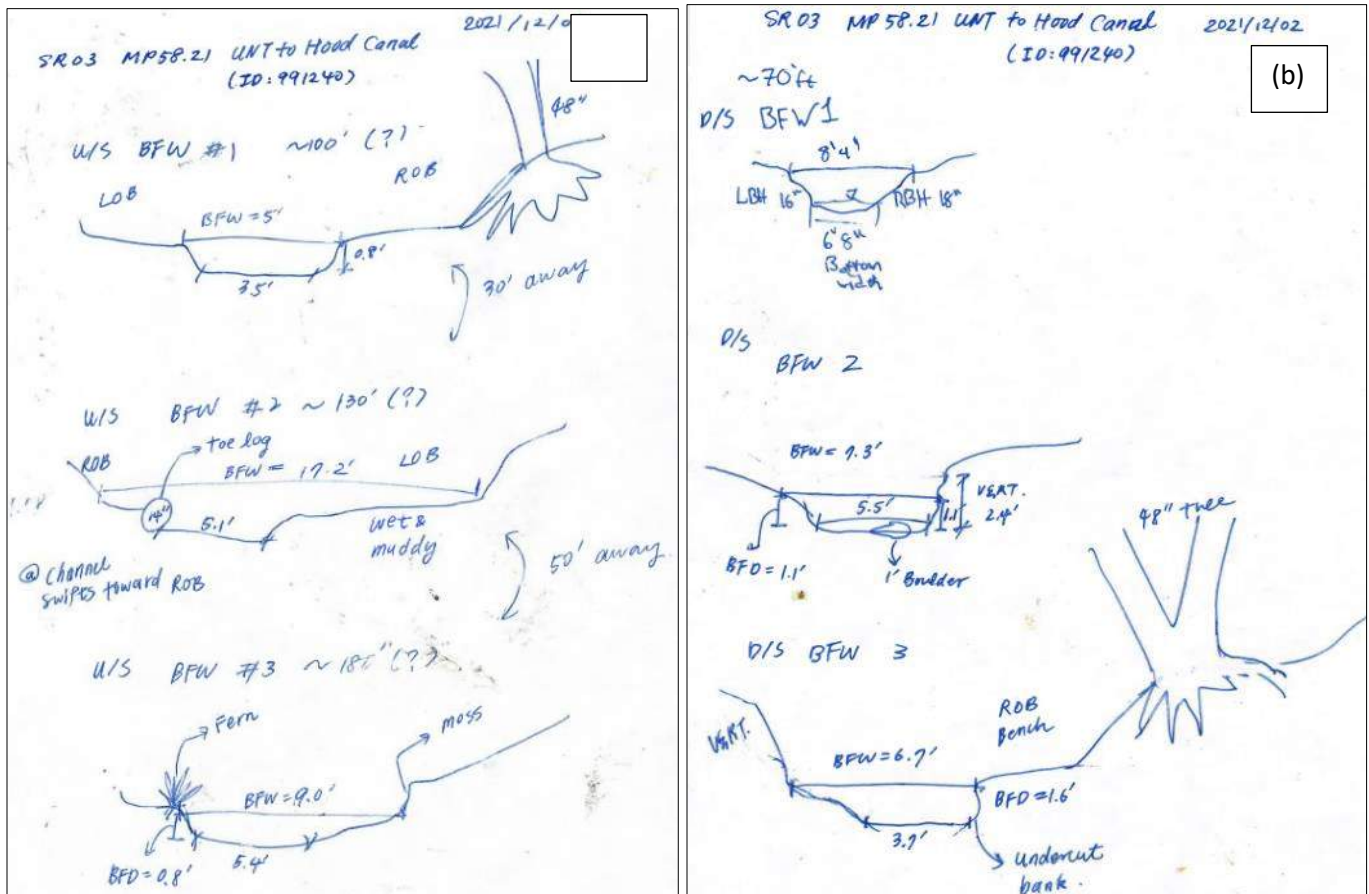 2021/12/0
SR03 MP58.21 UNT to Hood Canal
(ID:991240)
48"
U/S BFW #1 ~100' (?)
LOB
ROB
BFW = 5'
0.8'
3.5'
30' away
U/S BFW #2 ~130' (?)
toe log
ROB
BFW = 17.2'
LOB
14"
5.1'
wet &
muddy
@ Channel
swifts toward ROB
50' away
U/S BFW #3 ~ (?)
Fern
moss
BFW = 9.0'
BFD = 0.8'
5.4'
SR03 MP58.21 UNT to Hood Canal 2021/12/02
(ID:991240)
(b)
~70'ft
D/S BFW1
8'4"
LBH 16" RBH 18"
6'8"
Bottom
width
D/S
BFW 2
BFW = 7.3'
5.5'
1.1'
VERT.
2.4'
BFD = 1.1'
1' Boulder
48" tree
D/S BFW 3
VERT.
ROB
Bench
BFW = 6.7'
BFD = 1.6'
3.7'
undercut
bank.